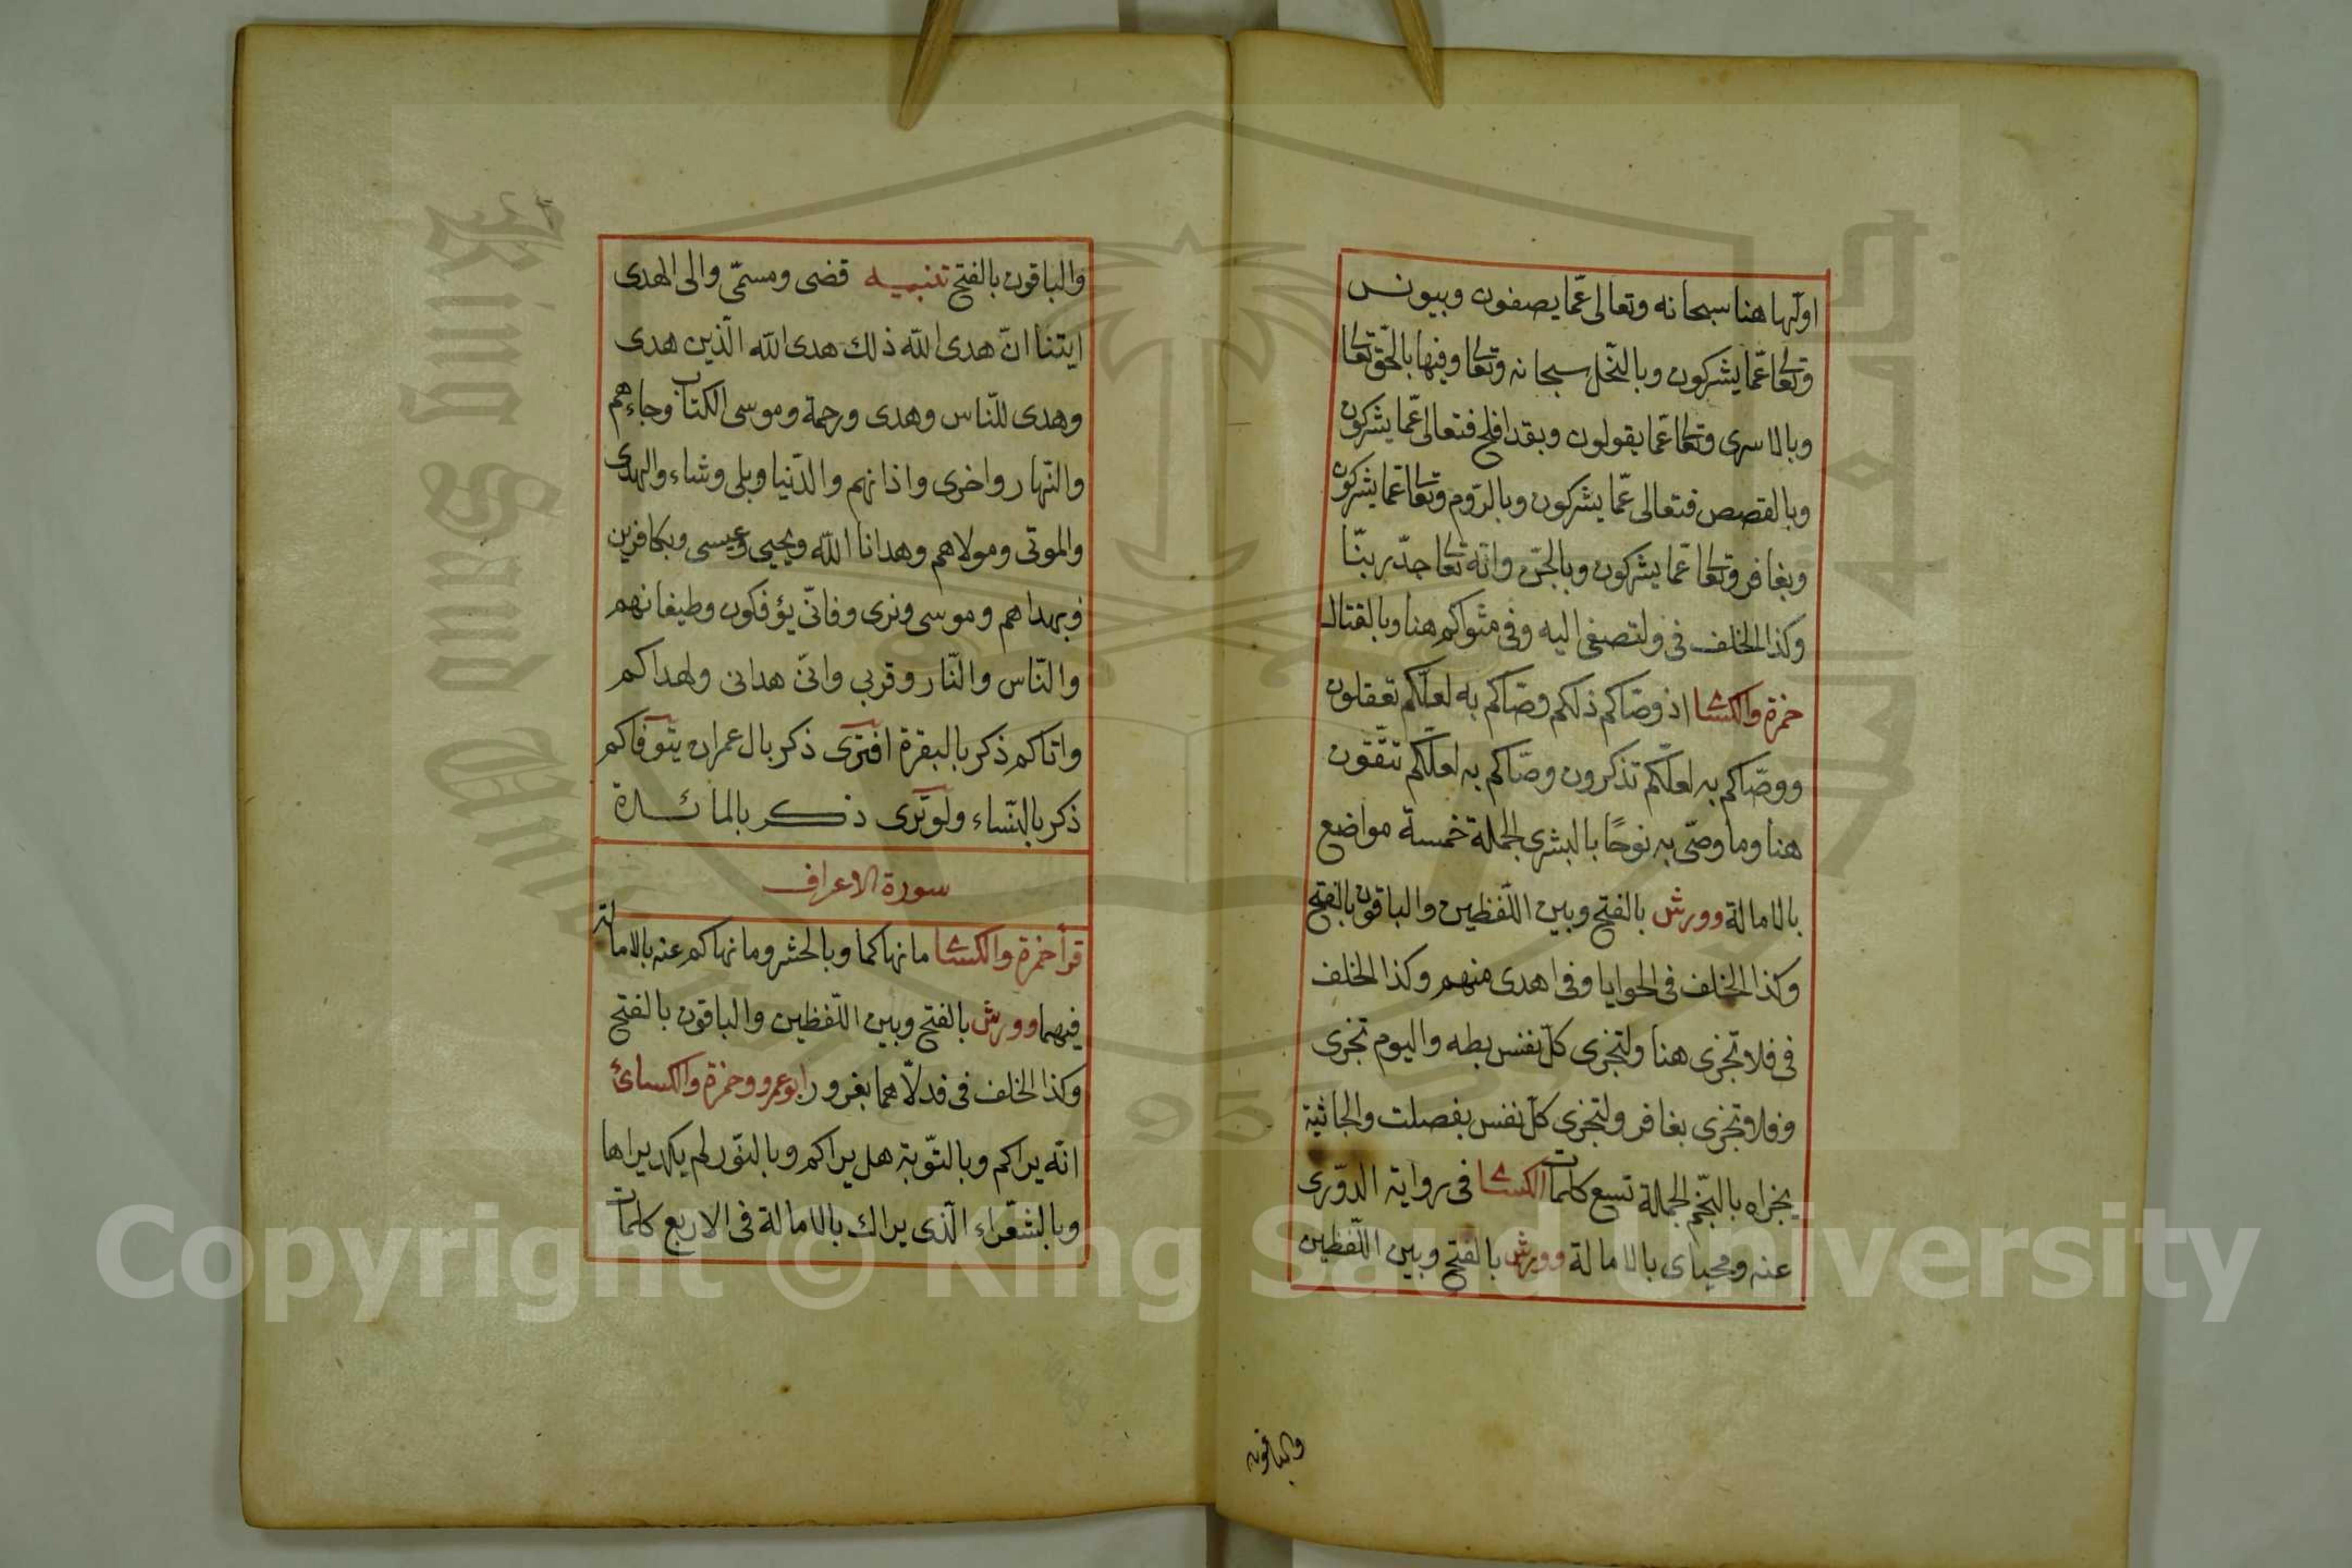 اولها هنا سبحانه وتعالى عمّا يصفون وبيونس
وتعا عمّا يشركون وبالنّحل سبحانه وتعا وفيها بالحقّ تعا
وبالاسرى وتعا عمّا يقولون وبقد افلح فتعالى عمّا يشركون
وبالقصص فتعالى عمّا يشركون وبالرّوم وتعا عمّا يشركون
وبغافر وتعا عمّا يشركون وبالجنّ وانّه تعا جدّ ربنّا
وكذا الخلف فى ولتصغى اليه وفى مثواكم هنا وبالقتال
حمزة والكسا اذ وصّاكم ذلكم وصّاكم به لعلّكم تعقلون
ووصّاكم به لعلّكم تذكرون وصّاكم به لعلّكم تتّقون
هنا وما وصّى به نوحًا بالبشرى الجملة خمسة مواضع
بالامالة وورش بالفتح وبين اللّفظين والباقون بالفتح
وكذا الخلف فى الحوايا وفى اهدى منهم وكذا الخلف
فى فلا تجزى هنا ولتجزى كلّ نفس بطه واليوم تجزى
وفلا تجزى بغافر ولتجزى كلّ نفس بفصلت والجاثية
يجزاه بالنّجم الجملة تسع كلمات الكسا فى رواية الدّورى
عنه ومحياى بالامالة وورش بالفتح وبين اللّفظين
والباقون
والباقون بالفتح تنبيه قضى ومسمّى والى الهدى
ايتنا انّ هدى اللّه ذلك هدى اللّه الّذين هدى
وهدى للنّاس وهدى ورحمة وموسى الكتاب وجاءهم
والنّهار واخرى واذانهم والدّنيا وبلى وشاء والهدى
والموتى ومولاهم وهدانا اللّه ويحيى وعيسى وبكافرين
فبهداهم وموسى ونرى وفانّى يؤفكون وطيغانهم
والنّاس والنّار وقربى وانّى هدانى ولهداكم
واتاكم ذكر بالبقرة افترى ذكر بال عمران يتوفاكم
ذكر بالنّساء ولو ترى ذكر بالمائدة
سورة الاعراف
قرأ حمزة والكسا ما نهاكما وبالحشر وما نهاكم عنه بالامالة
فيهما وورش بالفتح وبين اللّفظين والباقون بالفتح
وكذا الخلف فى فدلّاهما بغرور ابو عمرو وحمزة والكسائ
انّه يراكم وبالتّوبة هل يراكم وبالنّور لم يكد يراها
وبالشّعراء الّذى يراك بالامالة فى الاربع كلمات
King Saud University
1957
Copyright © King Saud University